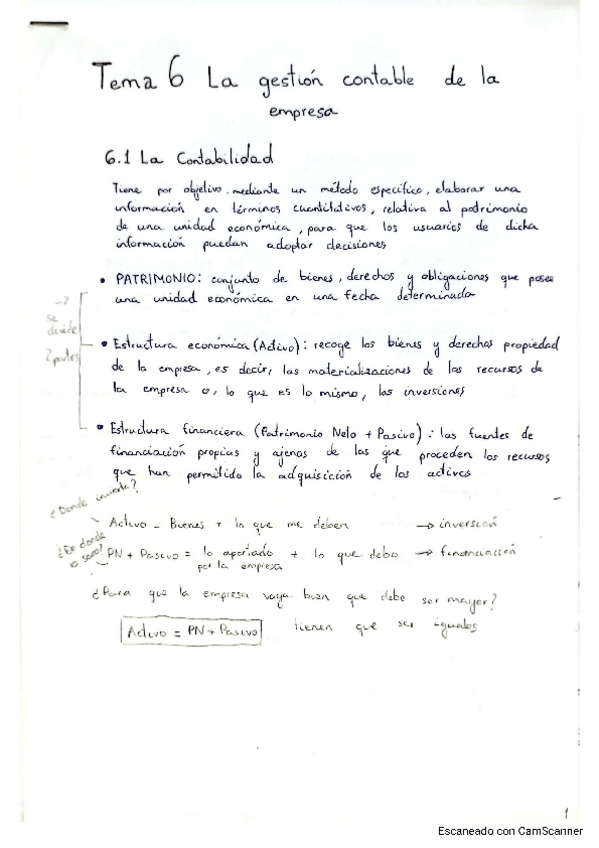 Tema 6 La gestión contable de la
empresa
6.1 La Contabilidad
Tiene por objetivo, mediante un método específico, elaborar una
información en términos cuantitativos, relativa al patrimonio
de una unidad económica, para que los usuarios de dicha
información puedan adoptar decisiones
• PATRIMONIO: conjunto de bienes, derechos y obligaciones que posee
una unidad económica en una fecha determinada
se
divide
2 partes
• Estructura económica (Activo): recoge los bienes y derechos propiedad
de la empresa, es decir, las materializaciones de los recursos de
la empresa o, lo que es lo mismo, las inversiones
• Estructura financiera (Patrimonio Neto + Pasivo): las fuentes de
financiación propias y ajenas de las que proceden los recursos
que han permitido la adquisición de los activos
¿Donde invierto?
Activo = Bienes + lo que me deben → inversión
¿De donde
lo saco?
PN + Pasivo = lo aportado + lo que debo → financiación
por la empresa
¿Para que la empresa vaya bien que debe ser mayor?
Activo = PN + Pasivo tienen que ser iguales
1
Escaneado con CamScanner